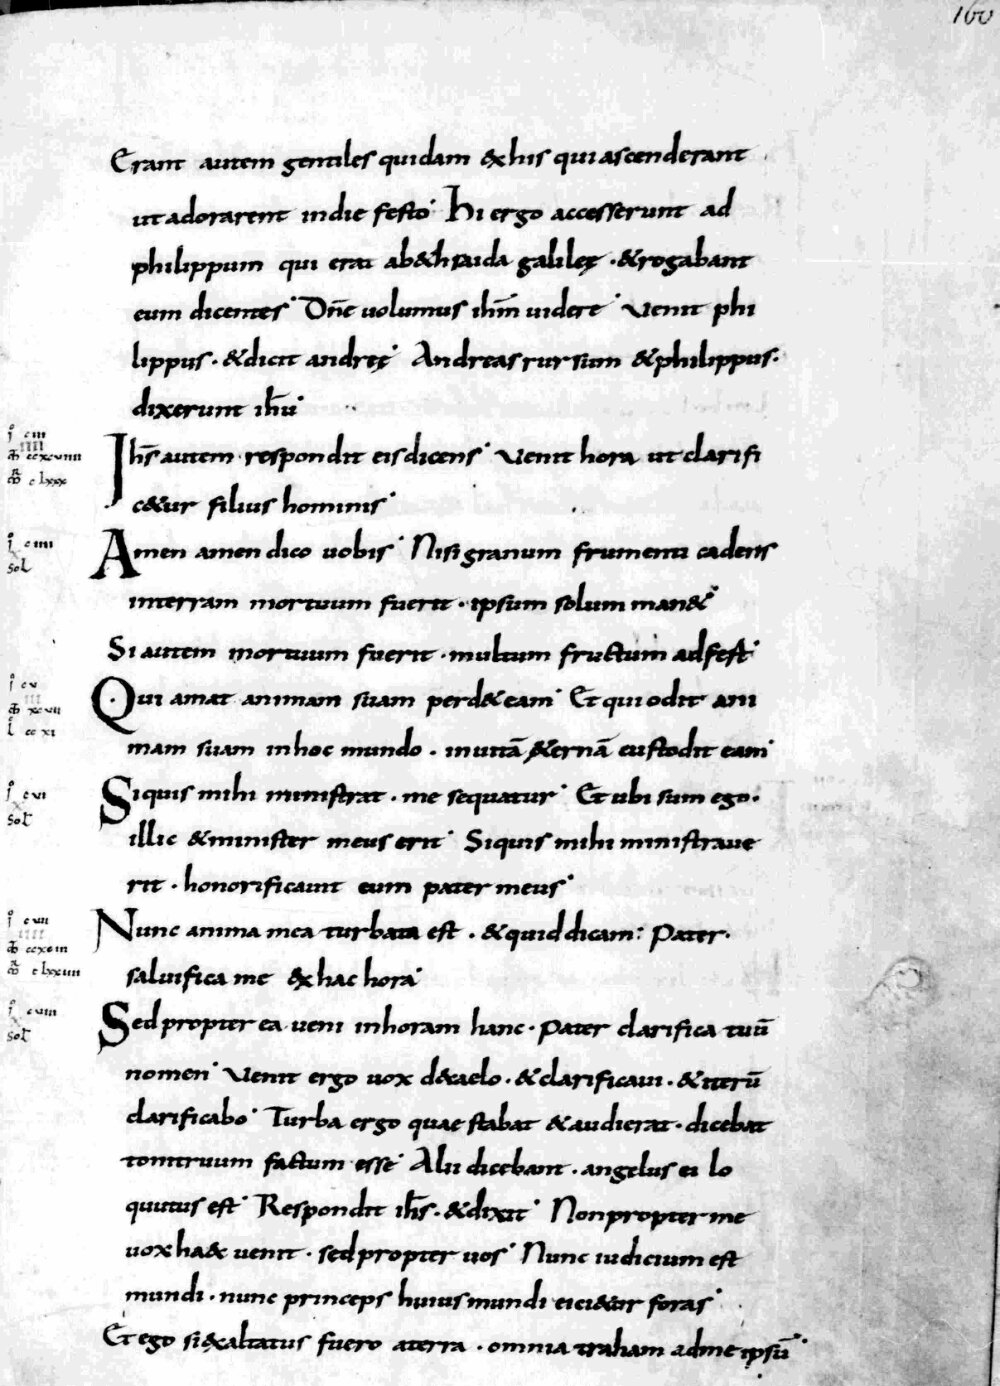 160
Erant autem gentiles quidam &his qui ascenderant
ut adorarent indie festo· Hi ergo accesserunt ad
philippum qui erat ab&hsaida galileę ·&rogabant
eum dicentes· Dn̄e uolumus ihm̄ uidere· Venit phi
lippus·&dicit andreę· Andreas rursum &philippus·
dixerunt ihū·
Ih̄s autem respondit eis dicens· Venit hora ut clarifi
c&ur filius hominis·
Amen amen dico uobis· Nisi granum frumenti cadens
interram mortuum fuerit · ipsum solum man&·
Si autem mortuum fuerit ·multum fructum adfert·
Qui amat animam suam perd&eam· Et qui odit ani
mam suam inhoc mundo · inuitā &ernā custodit eam·
Siquis mihi ministrat · me sequatur· Et ubi sum ego·
illic &minister meus erit· Siquis mihi ministraue
rit · honorificauit eum pater meus·
Nunc anima mea turbata est ·&quid dicam: Pater·
saluifica me &hac hora·
Sed propter ea ueni inhoram hanc· Pater clarifica tuū
nomen· Venit ergo uox d&caelo·&clarificaui·&iterū
clarificabo· Turba ergo quae stabat &audierat· dicebat
tonitruum factum esse· Alii dicebant · angelus ei lo
quutus est· Respondit ih̄s·&dixit· Non propter me
uox ha& uenit · sed propter uos· Nunc iudicium est
mundi · nunc princeps huius mundi eici&ur foras·
Et ego si&altatus fuero aterra · omnia traham adme ipsū·